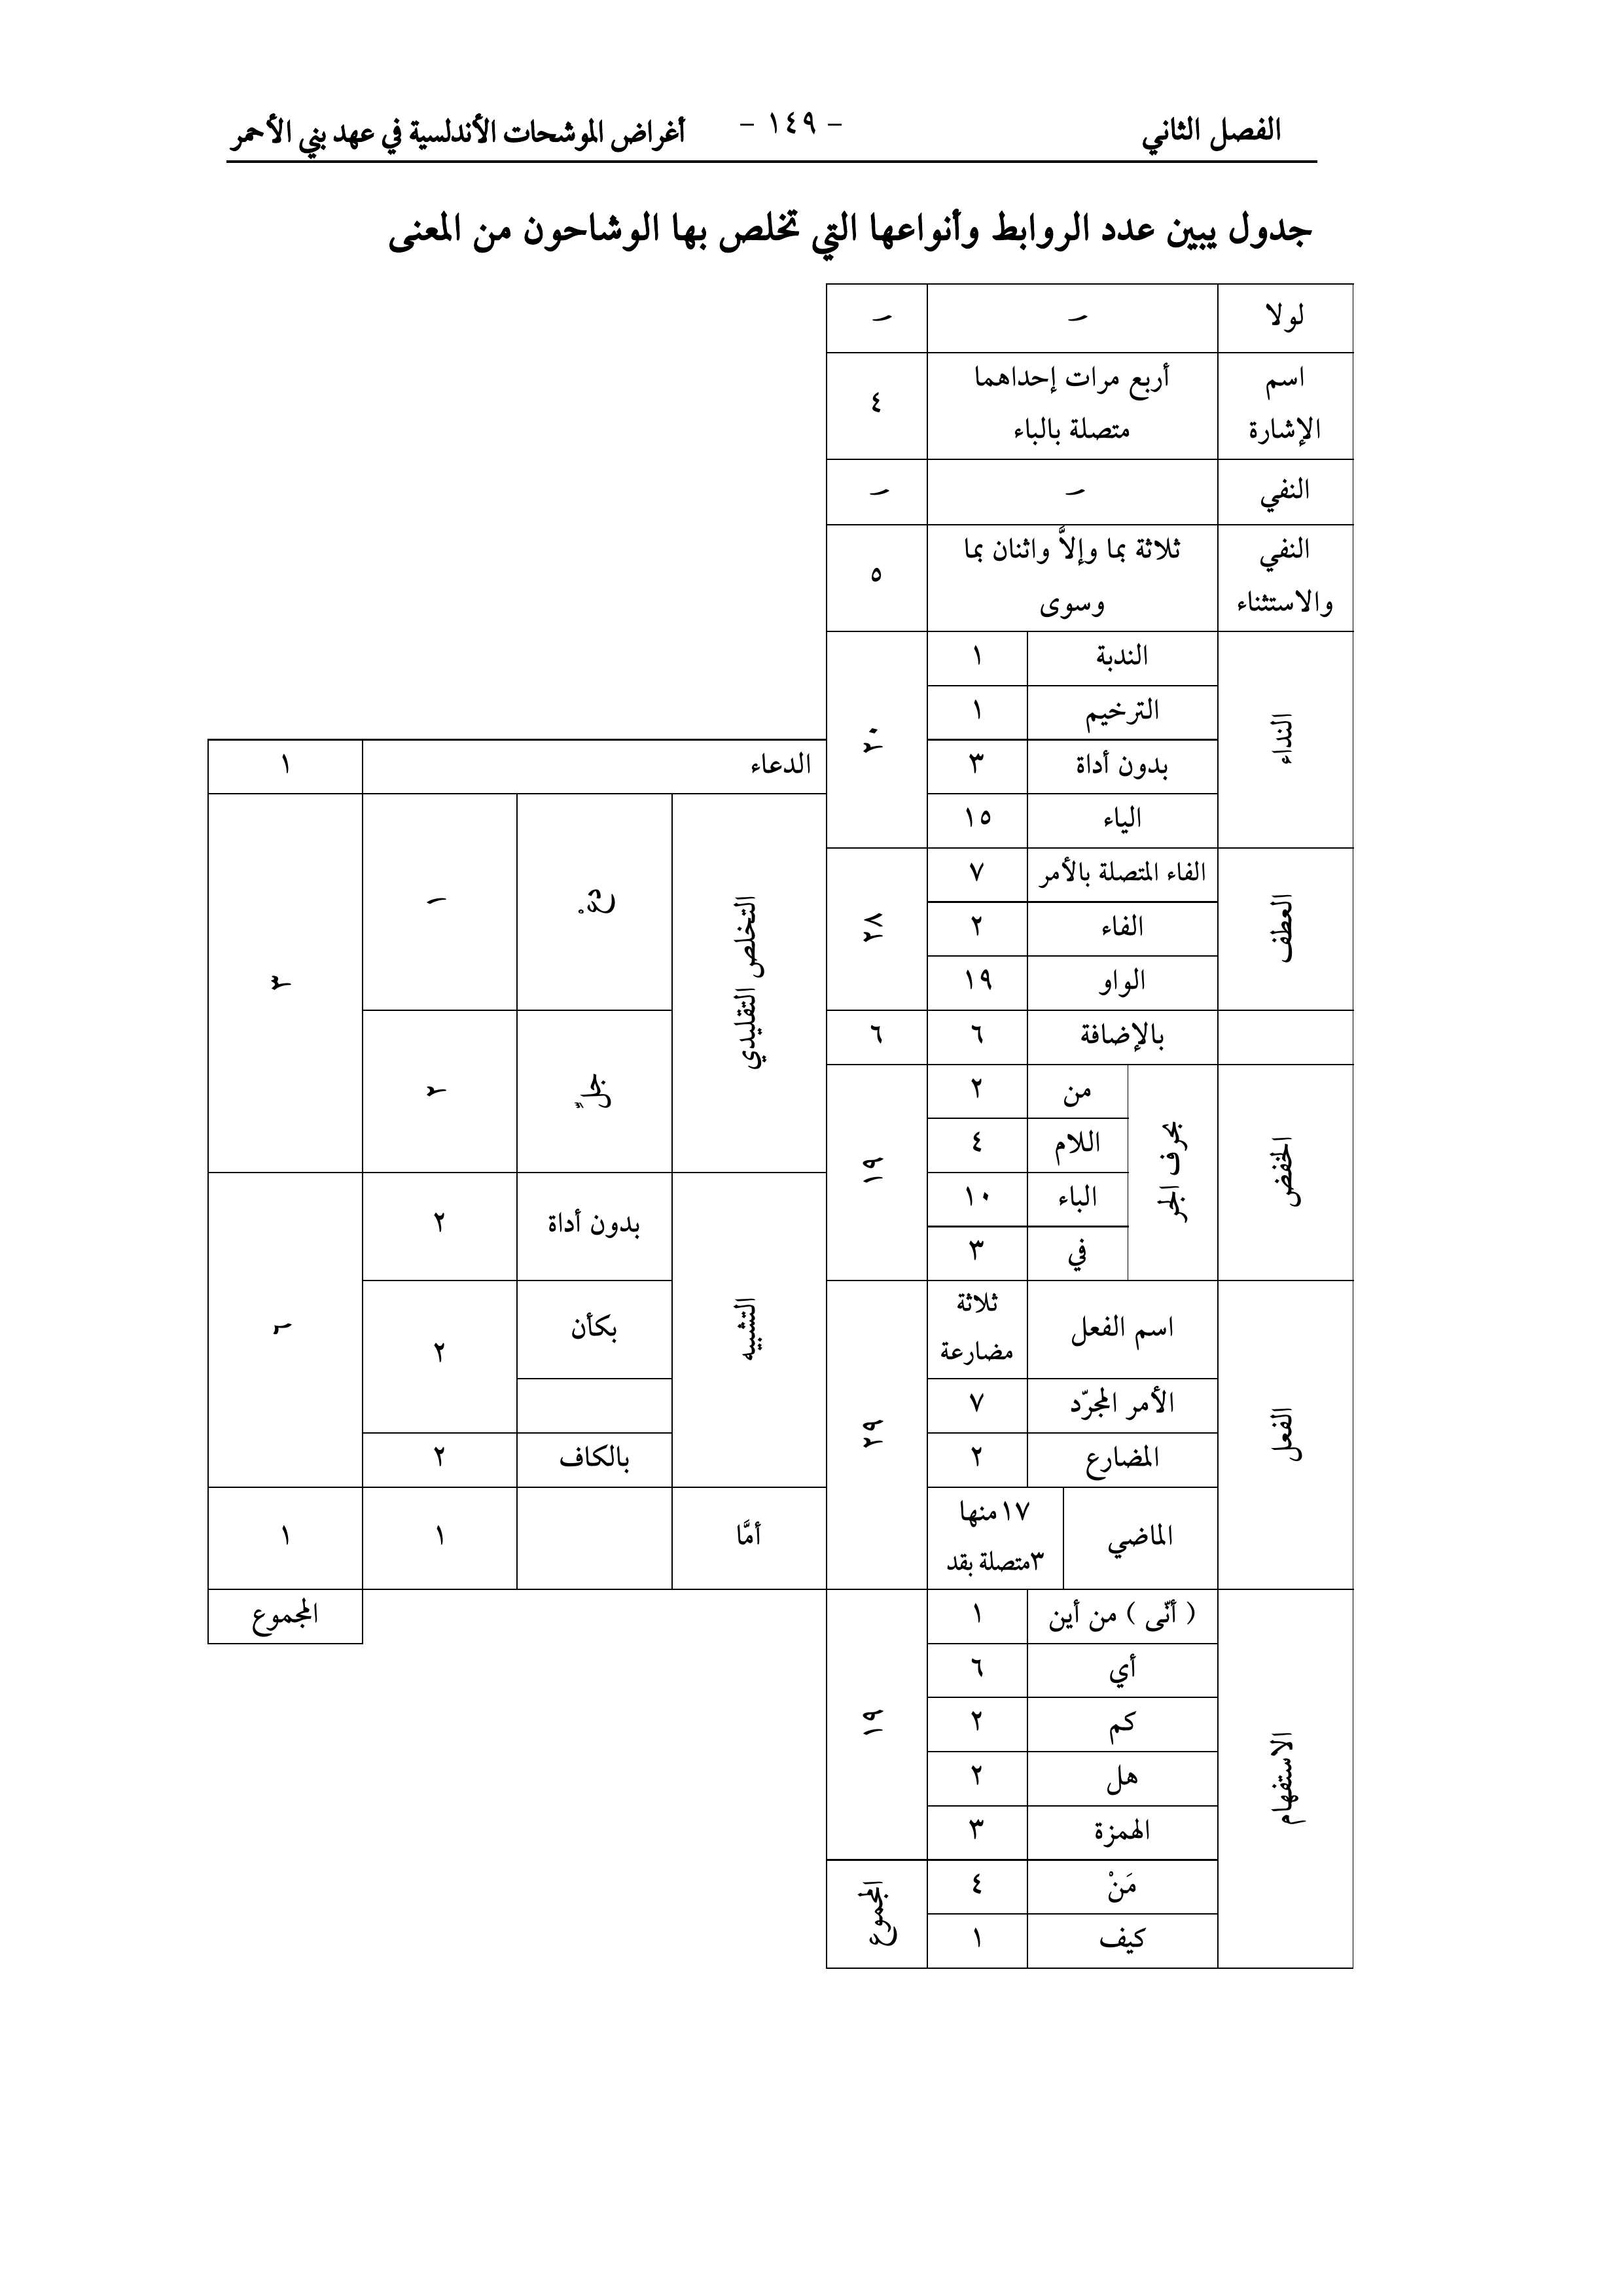 الفصل الثاني
- ١٤٩ -
أغراض الموشحات الأندلسية في عهد بني الأحمر
جدول يبين عدد الروابط وأنواعها التي تخلص بها الوشاحون من المعنى
لولا
–
–
اسم
الإشارة
أربع مرات إحداهما
متصلة بالباء
٤
النفي
–
–
النفي
والاستثناء
ثلاثة بما وإلاَّ واثنان بما
وسوى
٥
النداء
الندبة
١
الترخيم
١
بدون أداة
٣
الياء
١٥
٢٠
العطف
الفاء المتصلة بالأمر
٧
الفاء
٢
الواو
١٩
٢٨
بالإضافة
٦
٦
الخفض
بحرف الجر
من
٢
اللام
٤
الباء
١٠
في
٣
١٩
الفعل
اسم الفعل
ثلاثة
مضارعة
الأمر المجرّد
٧
المضارع
٢
الماضي
١٧منها
٣متصلة بقد
٢٩
الاستفهام
( أنّى ) من أين
١
أي
٦
كم
٢
هل
٢
الهمزة
٣
مَنْ
٤
كيف
١
١٩
المجموع
الدعاء
١
التخلص التقليدي
دعْ
١
جلّ
٢
٣
التشبيه
بدون أداة
٢
بكأن
٢
بالكاف
٢
٦
أمَّا
١
١
المجموع